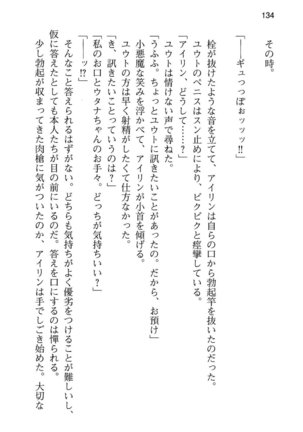 134
その時。
「――ギュっっぽぉッッッ!!」
栓が抜けたような音を立てて、アイリンは自らの口から勃起竿を抜いたのだった。
ユウトのペニスはスン止めにより、ピクピクと痙攣している。
「アイリン、どうして……?」
ユウトは情けない声で尋ねた。
「うふふ。ちょっとユウトに訊きたいことがあったの。だから、お預け」
小悪魔な笑みを浮かべて、アイリンが小首を傾げる。
ユウトの方は早く射精がしたくて仕方なかった。
「き、訊きたいことっていうのは?」
「私のお口とウタナちゃんのお手々。どっちが気持ちいい?」
「――ッ!?」
そんなこと答えられるはずがない。どちらも気持ちがよく優劣をつけることが難しいし、
仮に答えたとしても本人たちが目の前にいるのだ。答えを口にするのは憚られる。
少し勃起が収まってきた肉槍に気がついたのか、アイリンは手でしごき始めた。大切な